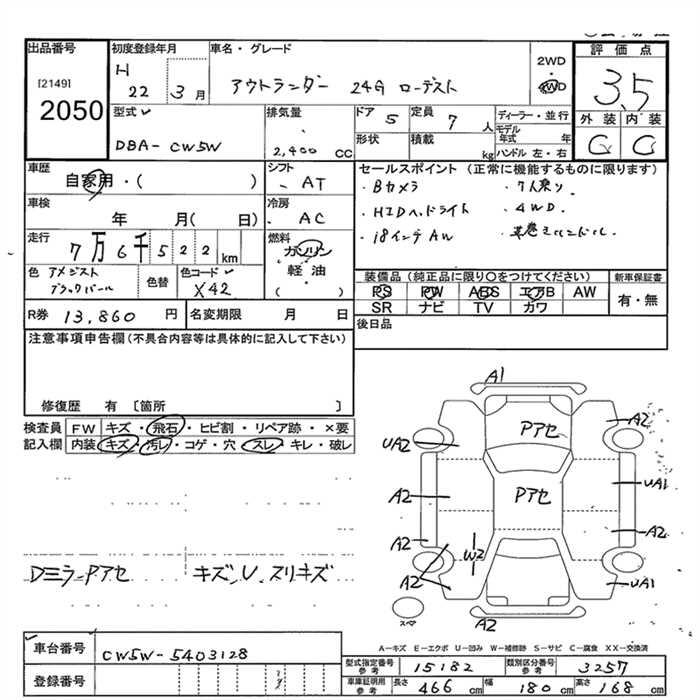 出品番号
[2149]
2050
初度登録年月
H 22 3月
車名・グレード
アウトランダー 24G ローデスト
2WD
4WD
評価点
3.5
外装 内装
C C
型式
DBA-CW5W
排気量
2,400 CC
ドア 5
形状
定員 7 人
積載 kg
ディーラー・並行
モデル年式 年
ハンドル 左・右
車歴
自家用・( )
シフト
AT
車検
年 月( 日)
冷房
AC
走行
7万6千522km
燃料
ガソリン
軽油
( )
セールスポイント (正常に機能するものに限ります)
・Bカメラ ・7人乗り
・HIDヘッドライト ・4WD.
・18インチAW ・革巻きハンドル.
色 アメジストブラックパール
色替
色コード
X42
装備品(純正品に限り○をつけてください)
PS PW ABS エアB AW
SR ナビ TV カワ
新車保証書
有・無
R券 13,860 円
名変期限 月 日
後日品
注意事項申告欄(不具合内容等は具体的に記入して下さい)
修復歴 有〔箇所 〕
検査員記入欄
FW キズ・飛石・ヒビ割・リペア跡・×要
内装 キズ・汚レ・コゲ・穴・スレ・キレ・破レ
Dミラ-Pアセ キズ,U,スリキズ
A1
Pアセ
A2
UA2
Pアセ
UA1
A2
A2
A2
W2
A2
UA1
A2
スペア
A-キズ E-エクボ U-凹み W-補修跡 S-サビ C-腐食 XX-交換済
車台番号 CW5W-5403128
登録番号
型式指定番号参考 15182
類別区分番号参考 3257
車庫証明用参考 長さ 466 cm 幅 180 cm 高さ 168 cm